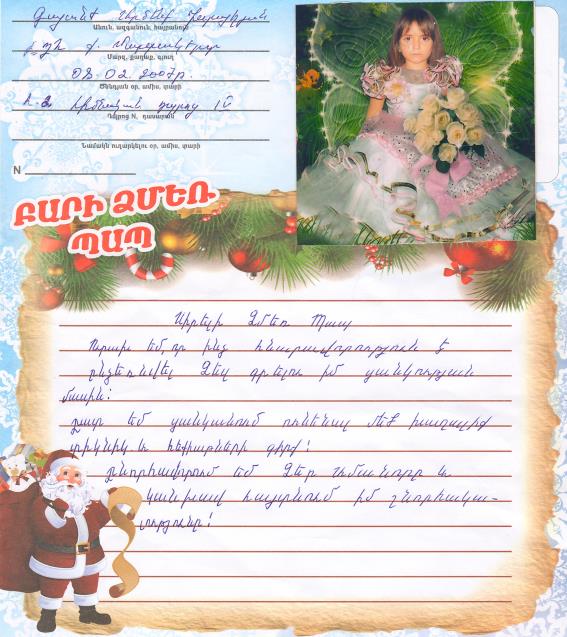 Գայանե Արմենի Հարությունյան
Անուն, ազգանուն, հայրանուն
ք. Մարտակերտ
Մարզ, քաղաք, գյուղ
08. 02. 2007թ.
Ծննդյան օր, ամիս, տարի
հ. 2 հիմնական դպրոց
Դպրոց N, դասարան
Նամակն ուղարկելու օր, ամիս, տարի
N
ԲԱՐԻ ՁՄԵՌ
ՊԱՊ
Սիրելի Ձմեռ Պապ
Ուրախ եմ, որ ինձ հնարավորություն է
ընձեռնվել Ձեզ գրելու իմ ցանկության
մասին:
Շատ եմ ցանկանում ունենալ մեծ խաղալիք
տիկնիկ և հեքիաթների գիրք:
Շնորհավորում եմ Ձեր Ամանորը և
կանխավ հայտնում իմ շնորհակա-
լությունը: